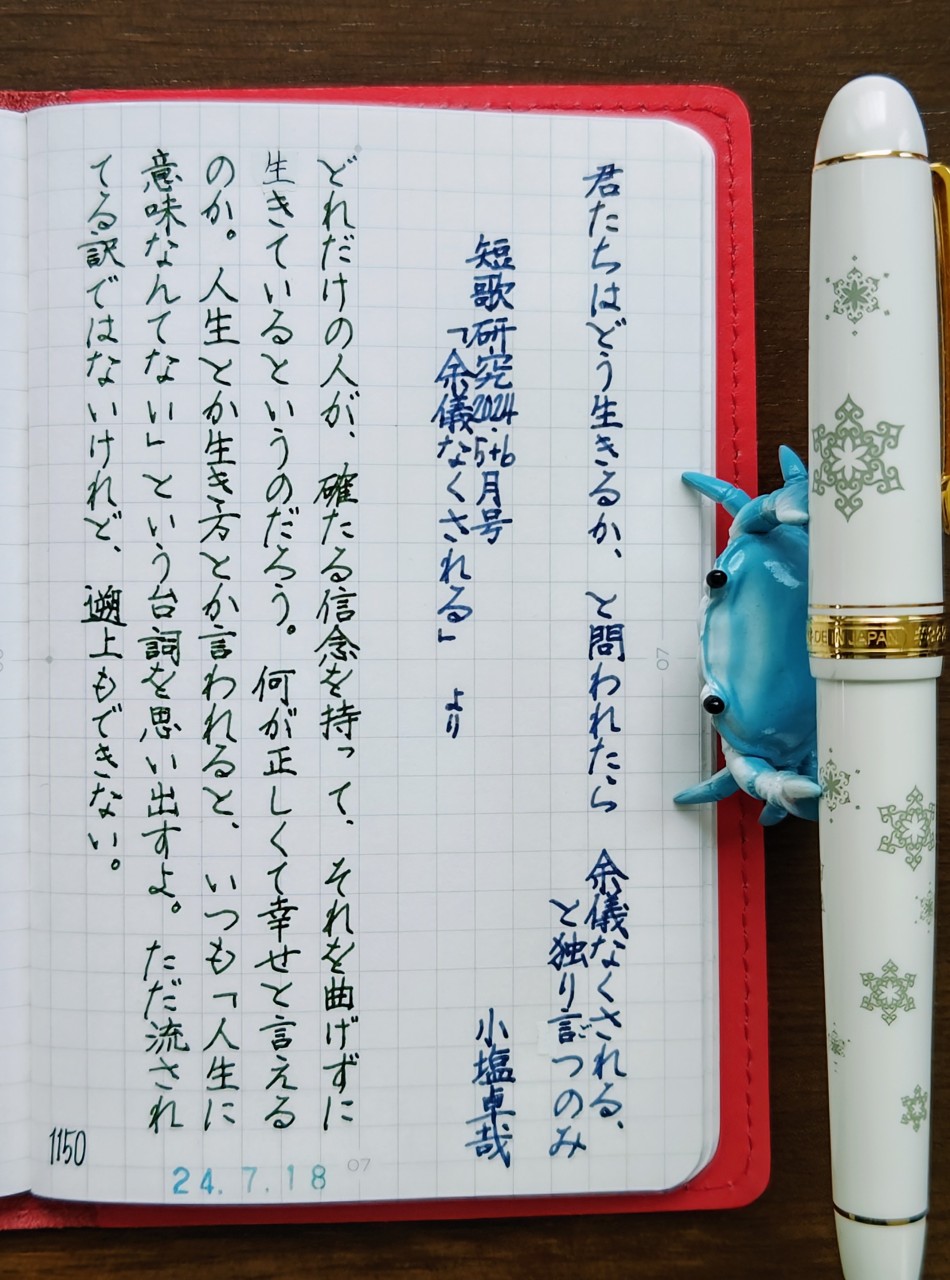 君たちはどう生きるか、と問われたら　余儀なくされる、
と独り言つのみ
小塩卓哉
短歌研究2024.5+6月号
「余儀なくされる」　より
どれだけの人が、確たる信念を持って、それを曲げずに
生きているというのだろう。何が正しくて幸せと言える
のか。人生とか生き方とか言われると、いつも「人生に
意味なんてない」という台詞を思い出すよ。ただ流され
てる訳ではないけれど、遡上もできない。
1150
24.7.18
07
07
MADE IN JAPAN